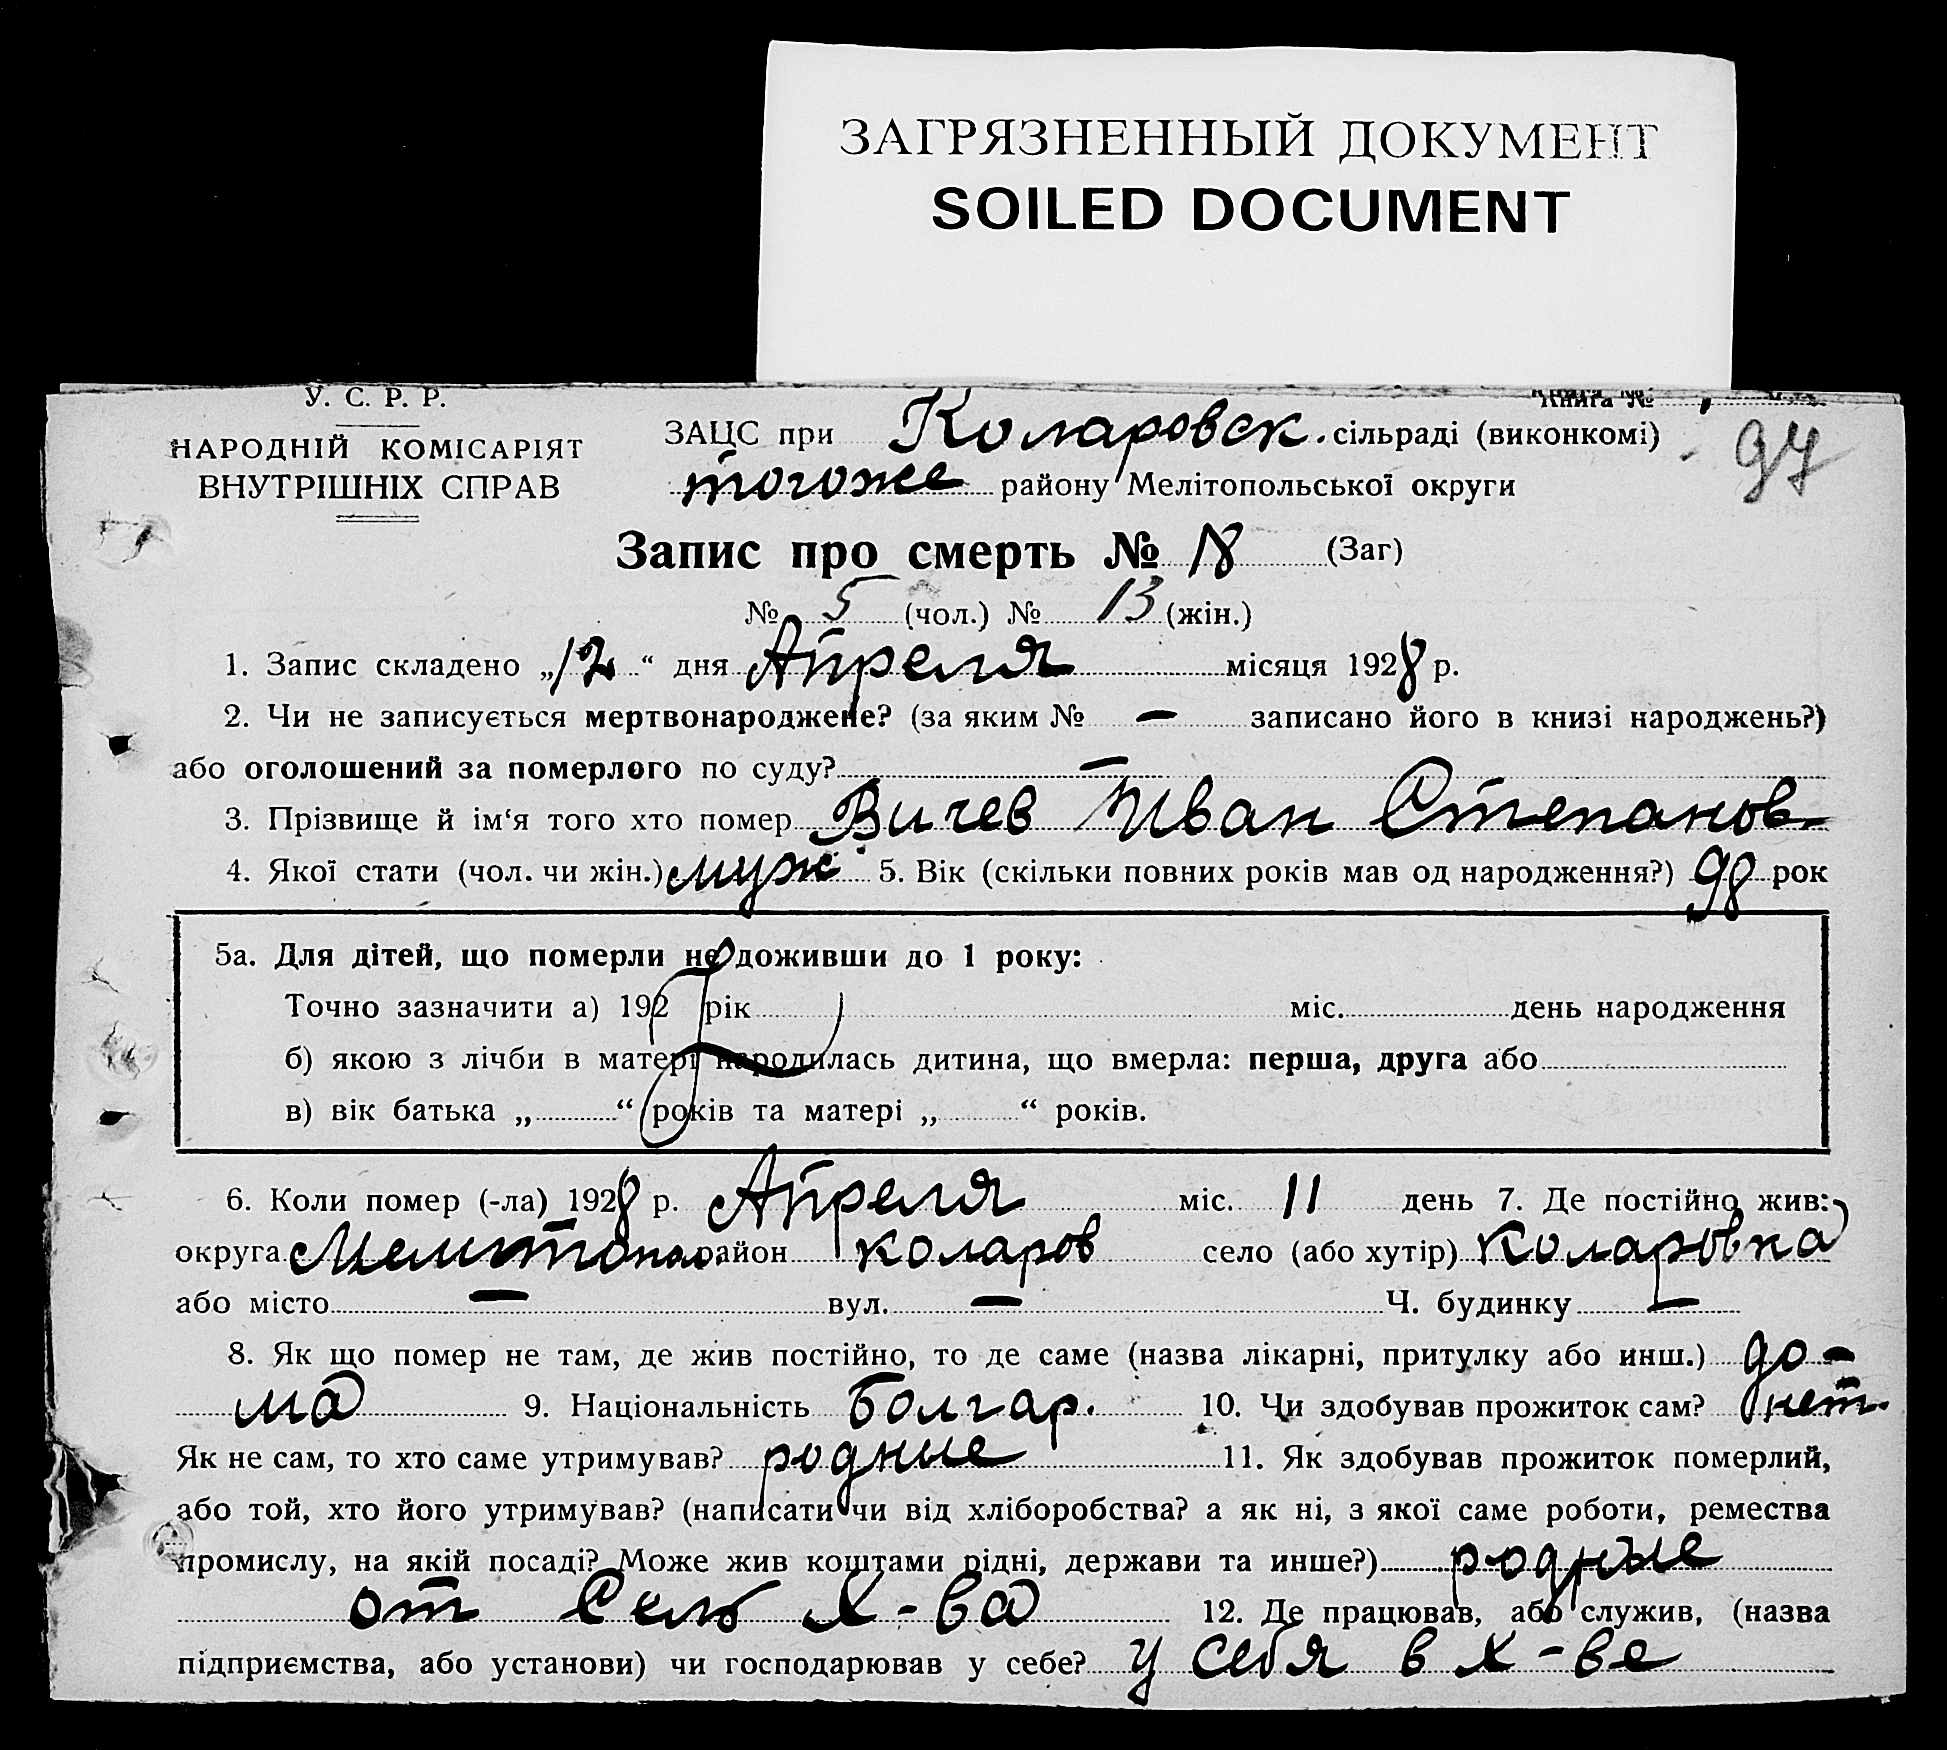 ЗАГРЯЗНЕННЫЙ ДОКУМЕНТ
SOILED DOCUMENT
У. С. Р. Р.
НАРОДНІЙ КОМІСАРІЯТ
ВНУТРІШНІХ СПРАВ
Книга №
ЗАЦС при Коларовск. сільраді (виконкомі)
97
тогоже району Мелітопольської округи
Запис про смерть № 18 (Заг)
№ 5 (чол.) № 13 (жін.)
1. Запис складено „12“ дня Апреля місяця 1928 р.
2. Чи не записується мертвонароджене? (за яким № — записано його в книзі народжень?)
або оголошений за померлого по суду? —
3. Прізвище й ім‘я того хто помер Вичев Иван Степанов
4. Якої стати (чол. чи жін.) муж 5. Вік (скільки повних років мав од народження?) 98 рок
5а. Для дітей, що померли не доживши до 1 року:
Точно зазначити а) 192 рік міс. день народження
б) якою з лічби в матері народилась дитина, що вмерла: перша, друга або
в) вік батька „ “ років та матері „ “ років.
6. Коли помер (-ла) 1928 р. Апреля міс. 11 день 7. Де постійно жив:
округа Мелитопол. район коларов село (або хутір) Коларовка
або місто — вул. — Ч. будинку —
8. Як що помер не там, де жив постійно, то де саме (назва лікарні, притулку або инш.) до-
ма 9. Національність болгар. 10. Чи здобував прожиток сам? нет.
Як не сам, то хто саме утримував? родные 11. Як здобував прожиток померлий,
або той, хто його утримував? (написати чи від хліборобства? а як ні, з якої саме роботи, ремества
промислу, на якій посаді? Може жив коштами рідні, держави та инше?) родные
от Сель х-ва 12. Де працював, або служив, (назва
підприємства, або установи) чи господарював у себе? у себя в х-ве